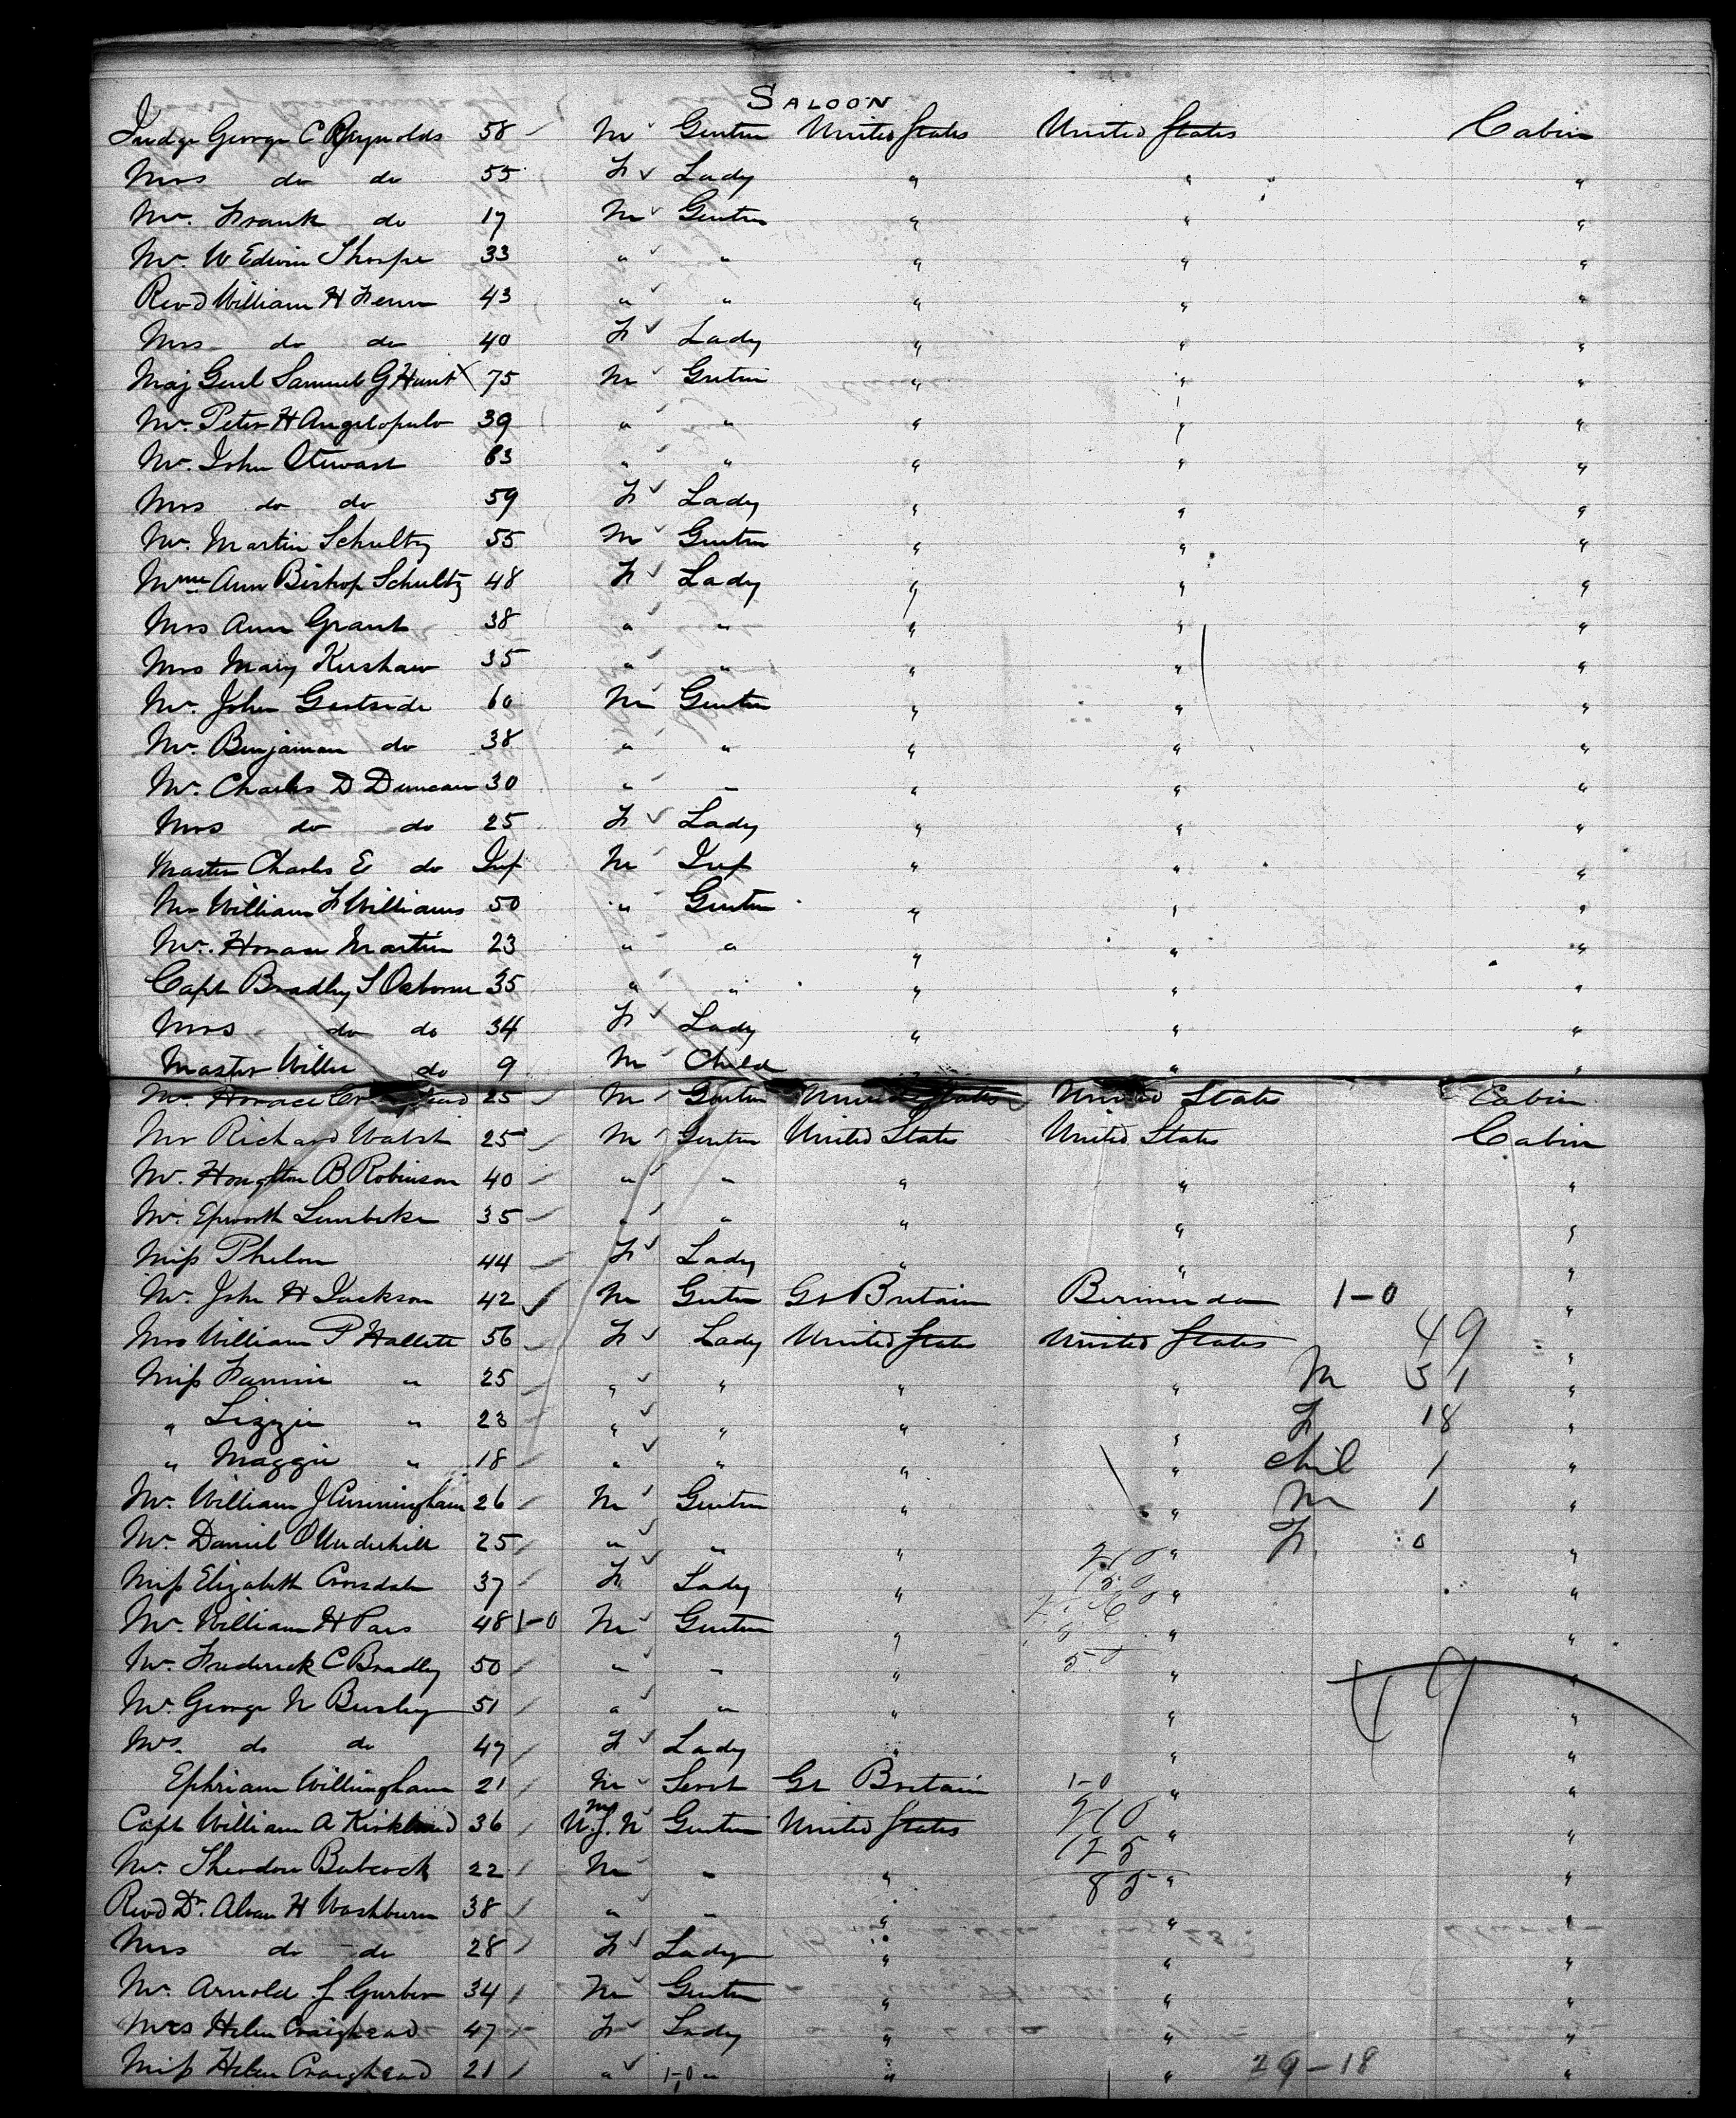 SALOON
Judge George C Reynolds 58 M Gentm United States United States Cabin
Mrs do do 55 F Lady " " "
Mr. Frank do 17 M Gentm " " "
Mr. W Edwin Thorpe 33 " " " " "
Revd William H Fenn 43 " " " " "
Mrs do do 40 F Lady " " "
Maj Genl Samuel G Hunt X 75 M Gentm " " "
Mr. Peter H Angelopulo 39 " " " " "
Mr. John Stewart 63 " " " " "
Mrs do do 59 F Lady " " "
Mr. Martin Schultz 55 M Gentm " " "
Mme Ann Bishop Schultz 48 F Lady " " "
Mrs Ann Grant 38 " " " " "
Mrs Mary Kershaw 35 " " " " "
Mr. John Gartside 60 M Gentm " " "
Mr. Benjaman do 38 " " " " "
Mr. Charles D Duncan 30 " " " " "
Mrs do do 25 F Lady " " "
Master Charles E do Inf M Inf " " "
Mr William F Williams 50 " Gentm " " "
Mr. Horace Martin 23 " " " " "
Capt Bradley S Osborne 35 " " " " "
Mrs do do 34 F Lady " " "
Master Willie do 9 M Child " "
Mr. Horace 25 M Gentm United States United States Cabin
Mr Richard Walsh 25 M Gentm United States United States Cabin
Mr. Houghton B Robinson 40 " " " " "
Mr. Epworth 35 " " " " "
Miss Phelon 44 F Lady " " "
Mr. John H Jackson 42 M Gentm Gr Britain Bermuda 1-0 "
Mrs William P Hallett 56 F Lady United States United States 49 "
Miss Fannie " 25 " " " " M 31 "
" Lizzie " 23 " " " " F 18 "
" Maggie " 18 " " " " Chil 1 "
Mr. William J Cunningham 26 M Gentm " " M 1 "
Mr. Daniel O Underhill 25 " " " " F. 0 "
Miss Elizabeth Croasdale 37 F Lady " " "
Mr. William H Pars 48 1-0 M Gentm " " "
Mr. Frederick C Bradley 50 " " " " "
Mr. George N Busley 51 " " " " 49 "
Mrs. do do 47 F Lady " " "
Ephriam Willingham 21 M Servt Gt Britain 1-0 " "
Capt William A Kirkland 36 U.S.N M Gentm United States 210 " "
Mr. Theodore Babcock 22 M " " 125 " "
Revd Dr. Alvan H Washburn 38 " " " 85 " "
Mrs do do 28 F Lady " " "
Mr. Arnold J Gurber 34 M Gentm " " "
Mrs Helen Craighead 47 F Lady " " "
Miss Helen Craighead 21 " 1-0 " " " 29-18 "